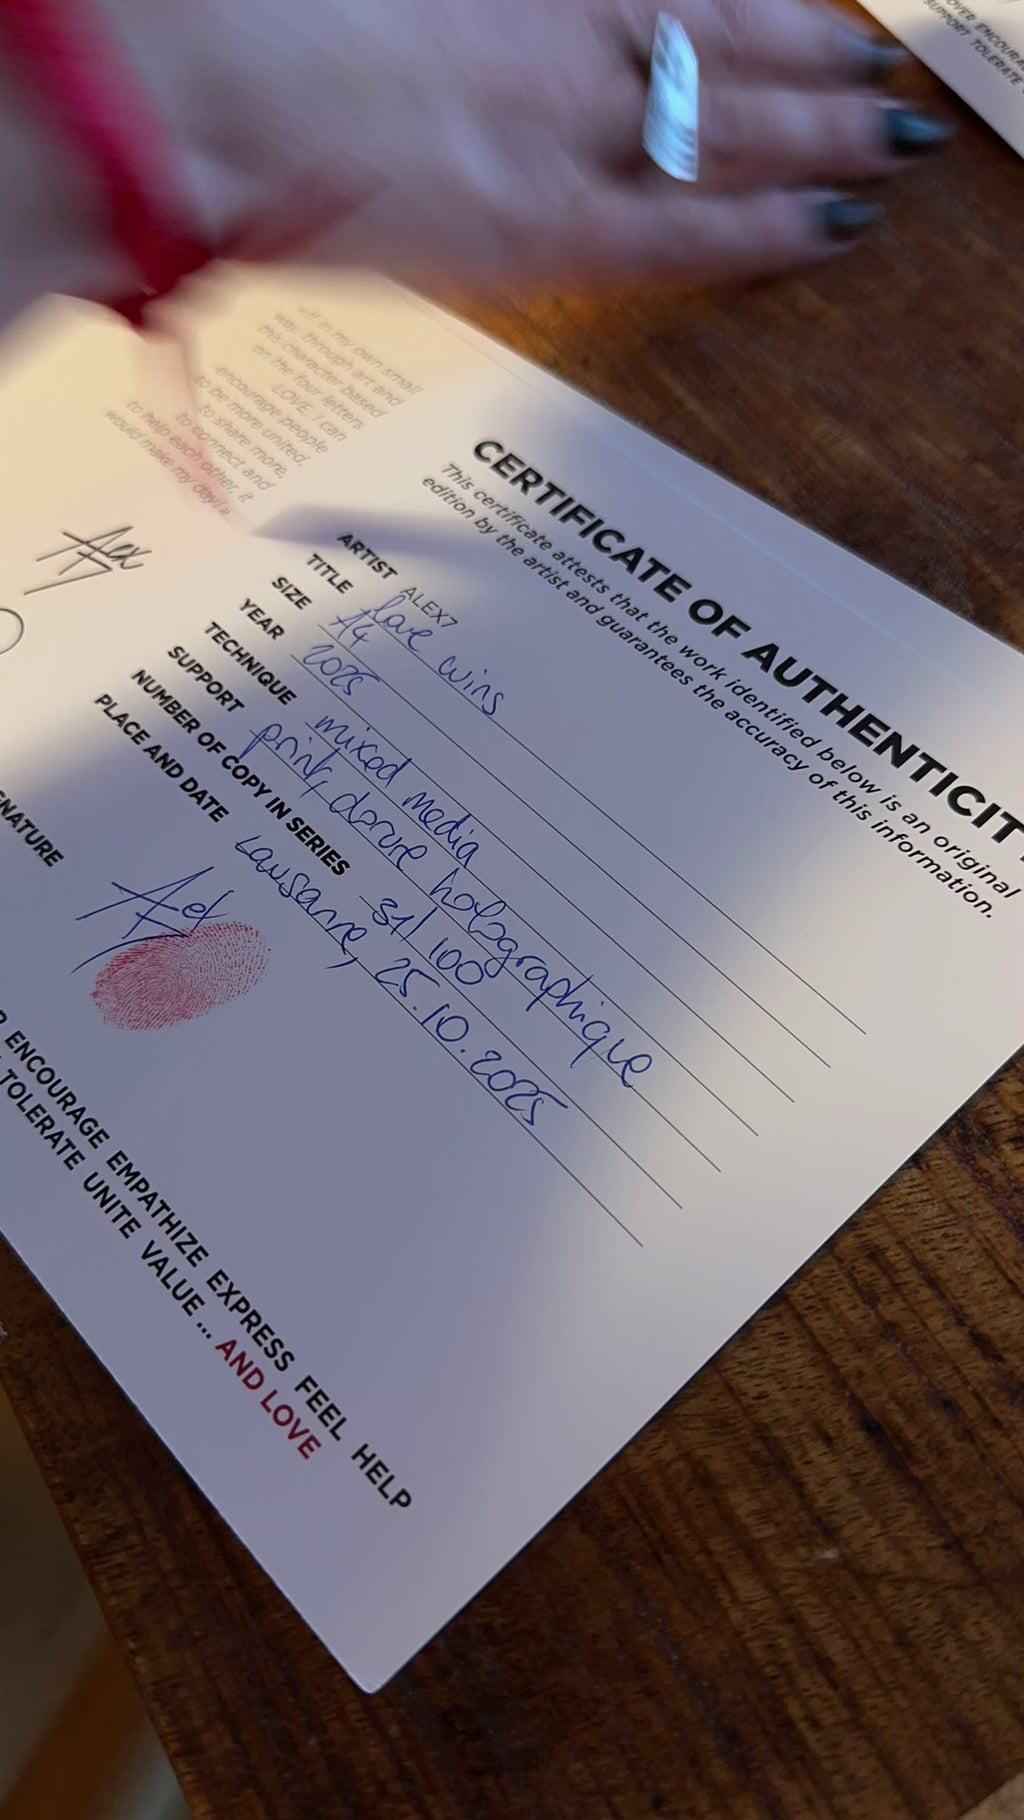 OVER ENCOURA
SUPPORT TOLERATE
all in my own small
way, through art and
this character based
on the four letters
LOVE, I can
encourage people
to be more united,
to share more,
to connect and
to help each other, it
would make my day!
CERTIFICATE OF AUTHENTICIT
This certificate attests that the work identified below is an original
edition by the artist and guarantees the accuracy of this information.
ARTIST ALEX7
TITLE love wins
SIZE A4
YEAR 2025
TECHNIQUE mixed media
SUPPORT print, dorure holographique
NUMBER OF COPY IN SERIES 31/100
PLACE AND DATE Lausanne, 25.10.2025
GNATURE
ENCOURAGE EMPATHIZE EXPRESS FEEL HELP
TOLERATE UNITE VALUE ... AND LOVE